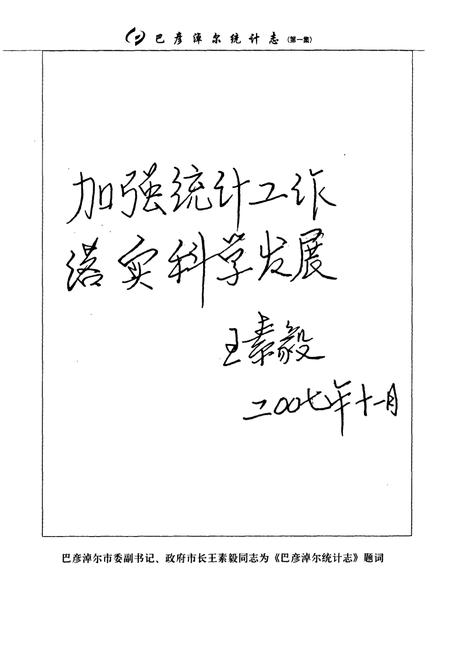 巴彦淖尔统计志(第一集)
加强统计工作
落实科学发展
王素毅
二〇〇七年十一月
巴彦淖尔市委副书记、政府市长王素毅同志为《巴彦淖尔统计志》题词